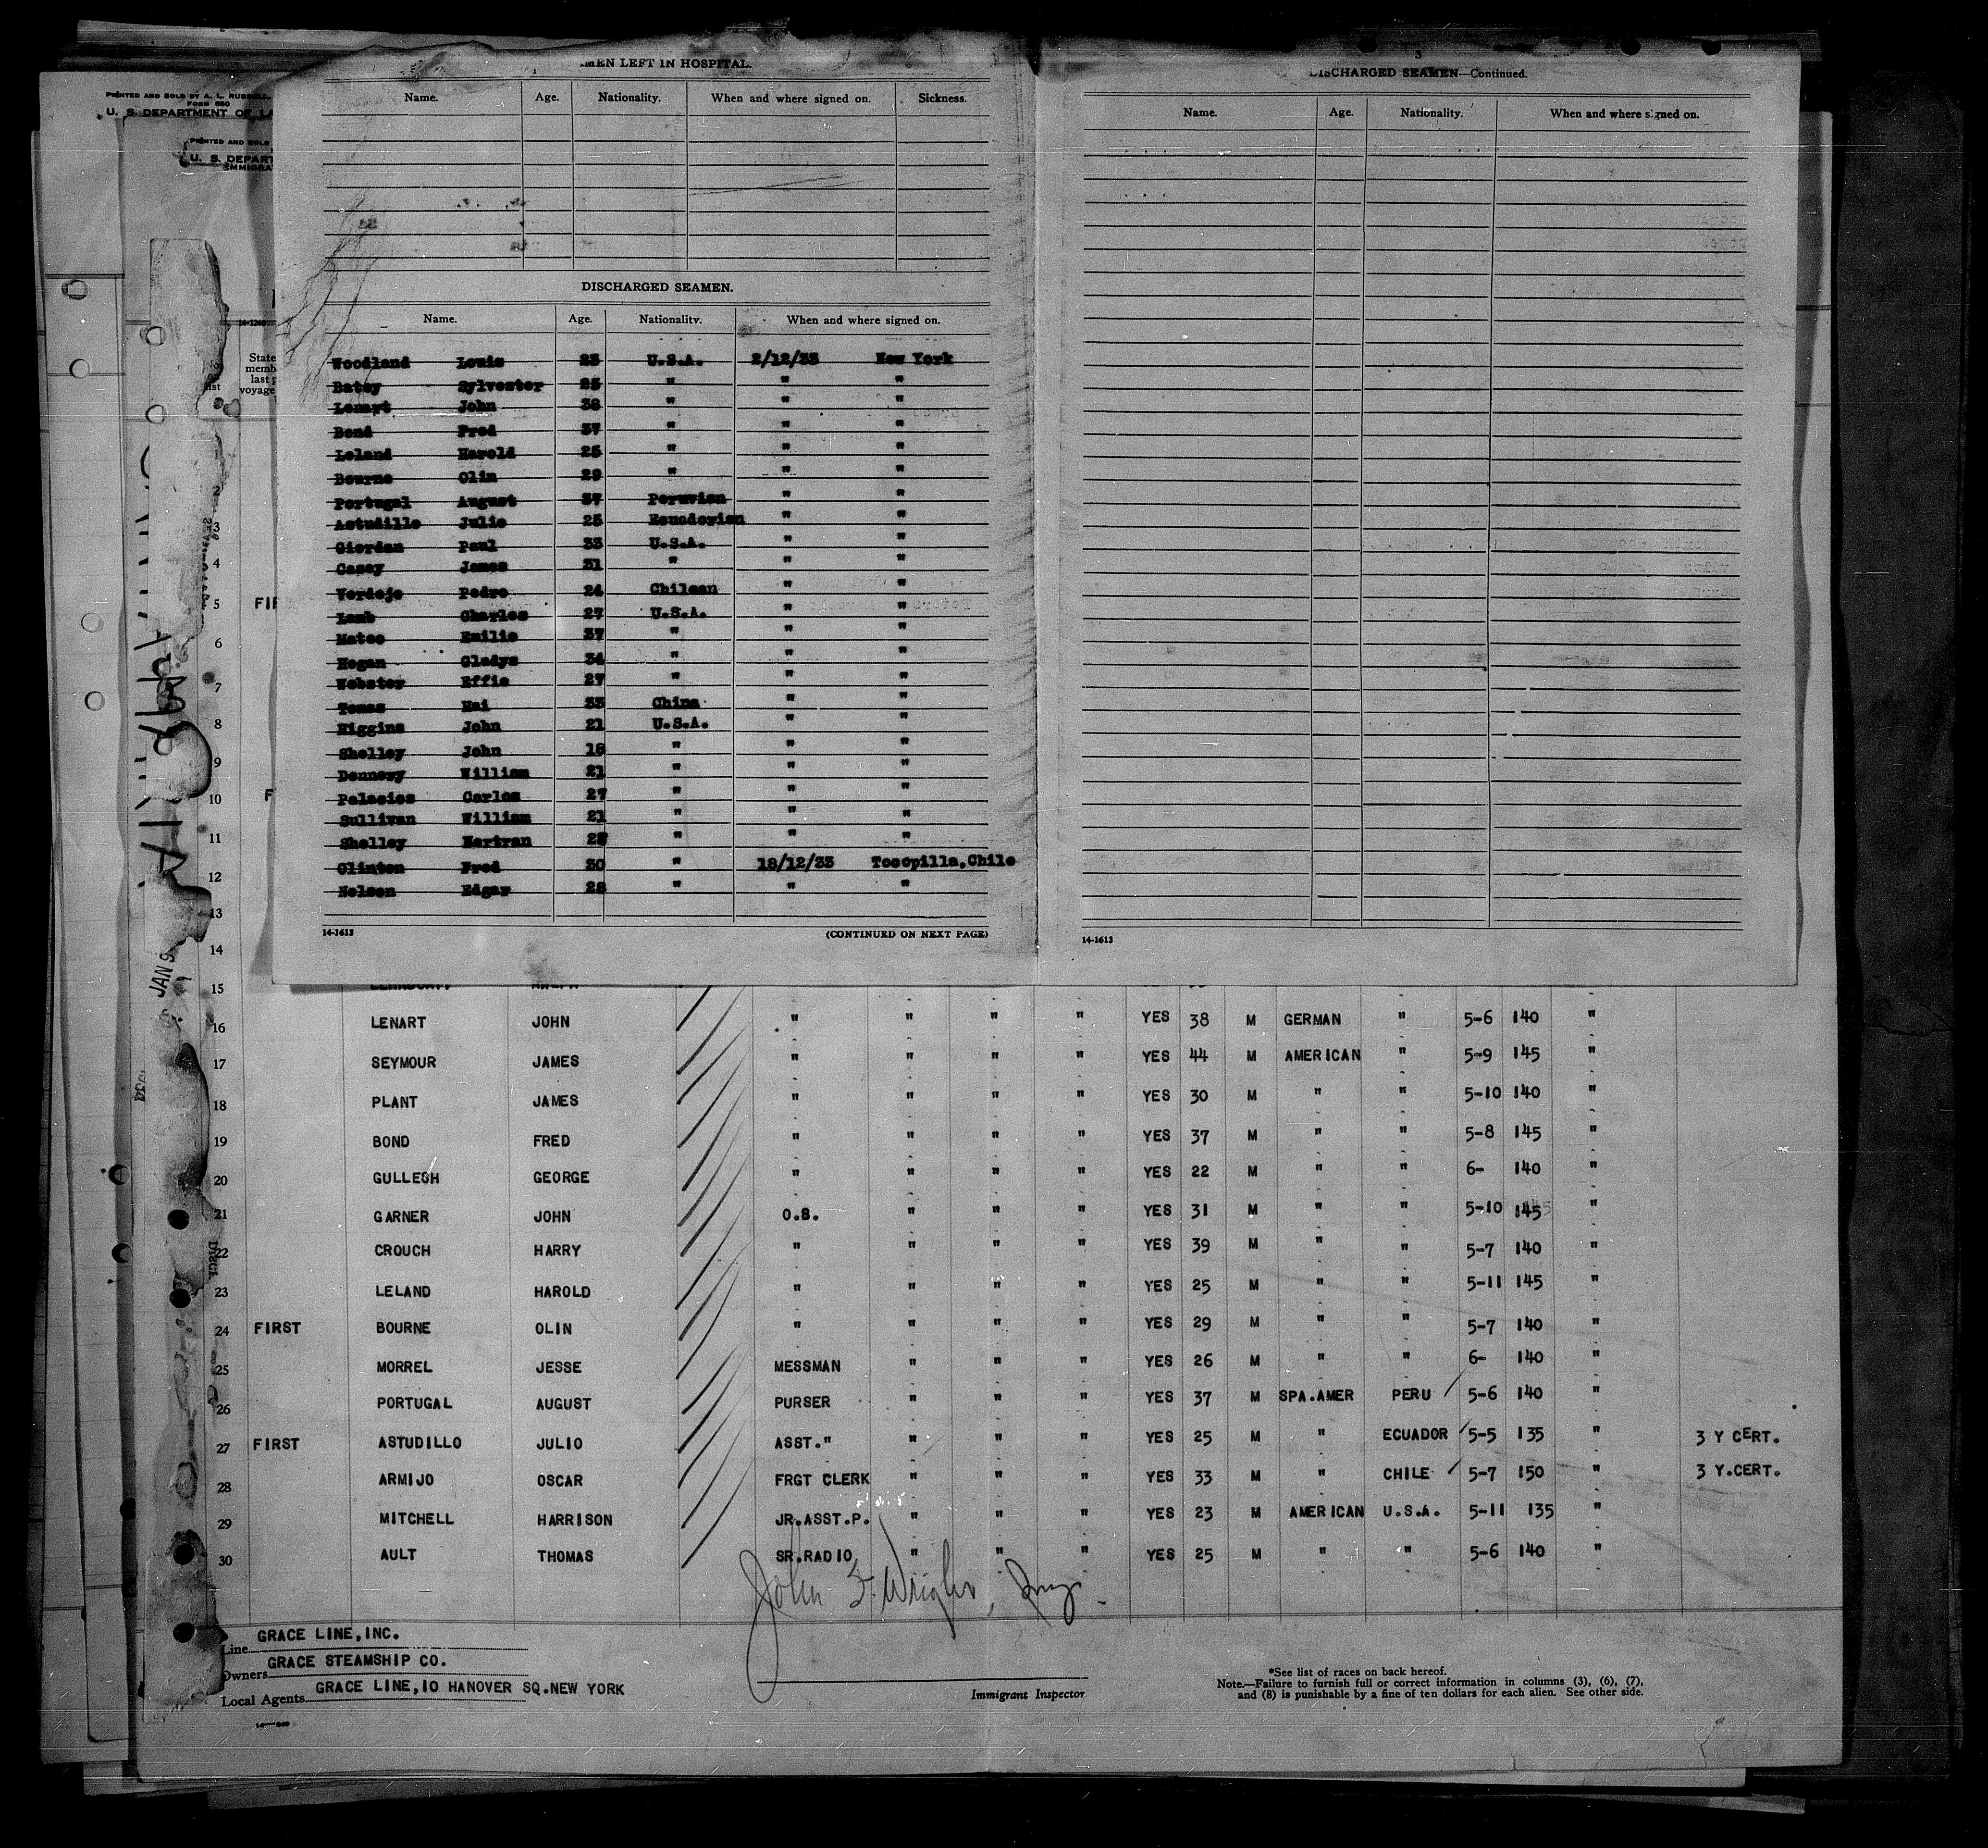 PRINTED AND SOLD BY A. L. RUSSELL,
FORM 680
U. S. DEPARTMENT OF LA
PRINTED AND SOLD
U. S. DEPART
IMMIGRA
MEN LEFT IN HOSPITAL.
Name. Age. Nationality. When and where signed on. Sickness.
DISCHARGED SEAMEN.
Name. Age. Nationality. When and where signed on.
Woodland Louis 23 U.S.A. 2/12/33 New York
Batey Sylvester 25 " " "
Lenart John 38 " " "
Bond Fred 37 " " "
Leland Harold 25 " " "
Bourne Olin 29 " " "
Portugal August 37 Peruvian " "
Astudillo Julio 25 Ecuadorian " "
Giordan Paul 33 U.S.A. " "
Casey James 31 " " "
Verdejo Pedro 24 Chilean " "
Lamb Charles 27 U.S.A. " "
Mateo Emilio 37 " " "
Hogan Gladys 34 " " "
Webster Effie 27 " " "
Tomas Hai 33 China " "
Higgins John 21 U.S.A. " "
Shelley John 18 " " "
Dennery William 21 " " "
Palacios Carlos 27 " " "
Sullivan William 21 " " "
Shelley " " "
Clinton Fred 30 " 18/12/33 Tocopilla,Chile
Nelson Edgar 28 " " "
14-1613 (CONTINUED ON NEXT PAGE)
3
DISCHARGED SEAMEN—Continued.
Name. Age. Nationality. When and where signed on.
14-1613
14-1240
State
memb
last p
voyage
No
list
1
2
3
4
5 FIR
6
7
8
9
10 F
11
12
13
14
JAN 9
15
16 LENART JOHN " " " " YES 38 M GERMAN " 5-6 140 "
17 SEYMOUR JAMES " " " " YES 44 M AMERICAN " 5-9 145 "
18 PLANT JAMES " " " " YES 30 M " " 5-10 140 "
19 BOND FRED " " " " YES 37 M " " 5-8 145 "
20 GULLESH GEORGE " " " " YES 22 M " " 6- 140 "
21 GARNER JOHN O.S. " " " YES 31 M " " 5-10 145 "
22 CROUCH HARRY " " " " YES 39 M " " 5-7 140 "
23 LELAND HAROLD " " " " YES 25 M " " 5-11 145 "
24 FIRST BOURNE OLIN " " " " YES 29 M " " 5-7 140 "
25 MORREL JESSE MESSMAN " " " YES 26 M " " 6- 140 "
26 PORTUGAL AUGUST PURSER " " " YES 37 M SPA.AMER PERU 5-6 140 "
27 FIRST ASTUDILLO JULIO ASST." " " " YES 25 M " ECUADOR 5-5 135 " 3 Y CERT.
28 ARMIJO OSCAR FRGT CLERK " " " YES 33 M " CHILE 5-7 150 " 3 Y.CERT.
29 MITCHELL HARRISON JR.ASST.P. " " " YES 23 M AMERICAN U.S.A. 5-11 135 "
30 AULT THOMAS SR.RADIO " " " YES 25 M " " 5-6 140 "
John F. Wright,
Line GRACE LINE,INC.
Owners GRACE STEAMSHIP CO.
Local Agents GRACE LINE,10 HANOVER SQ.NEW YORK
Immigrant Inspector
*See list of races on back hereof.
Note.—Failure to furnish full or correct information in columns (3), (6), (7),
and (8) is punishable by a fine of ten dollars for each alien. See other side.